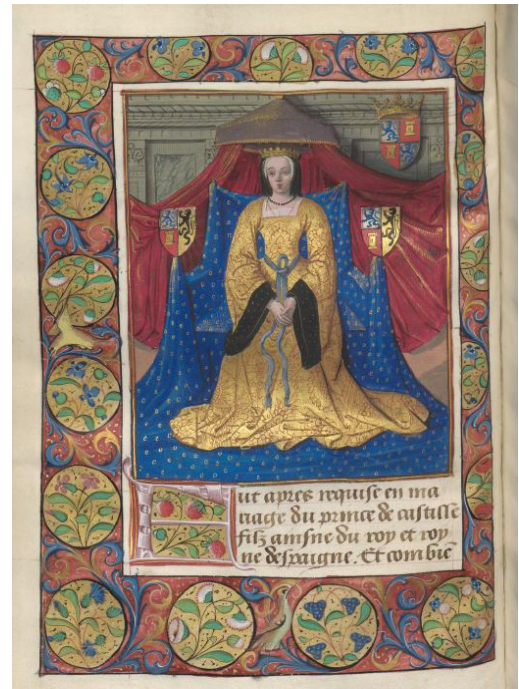 Fut apres requise en ma
riage du prince de castille
filz aisne du roy et roy
ne despaigne. Et com bie